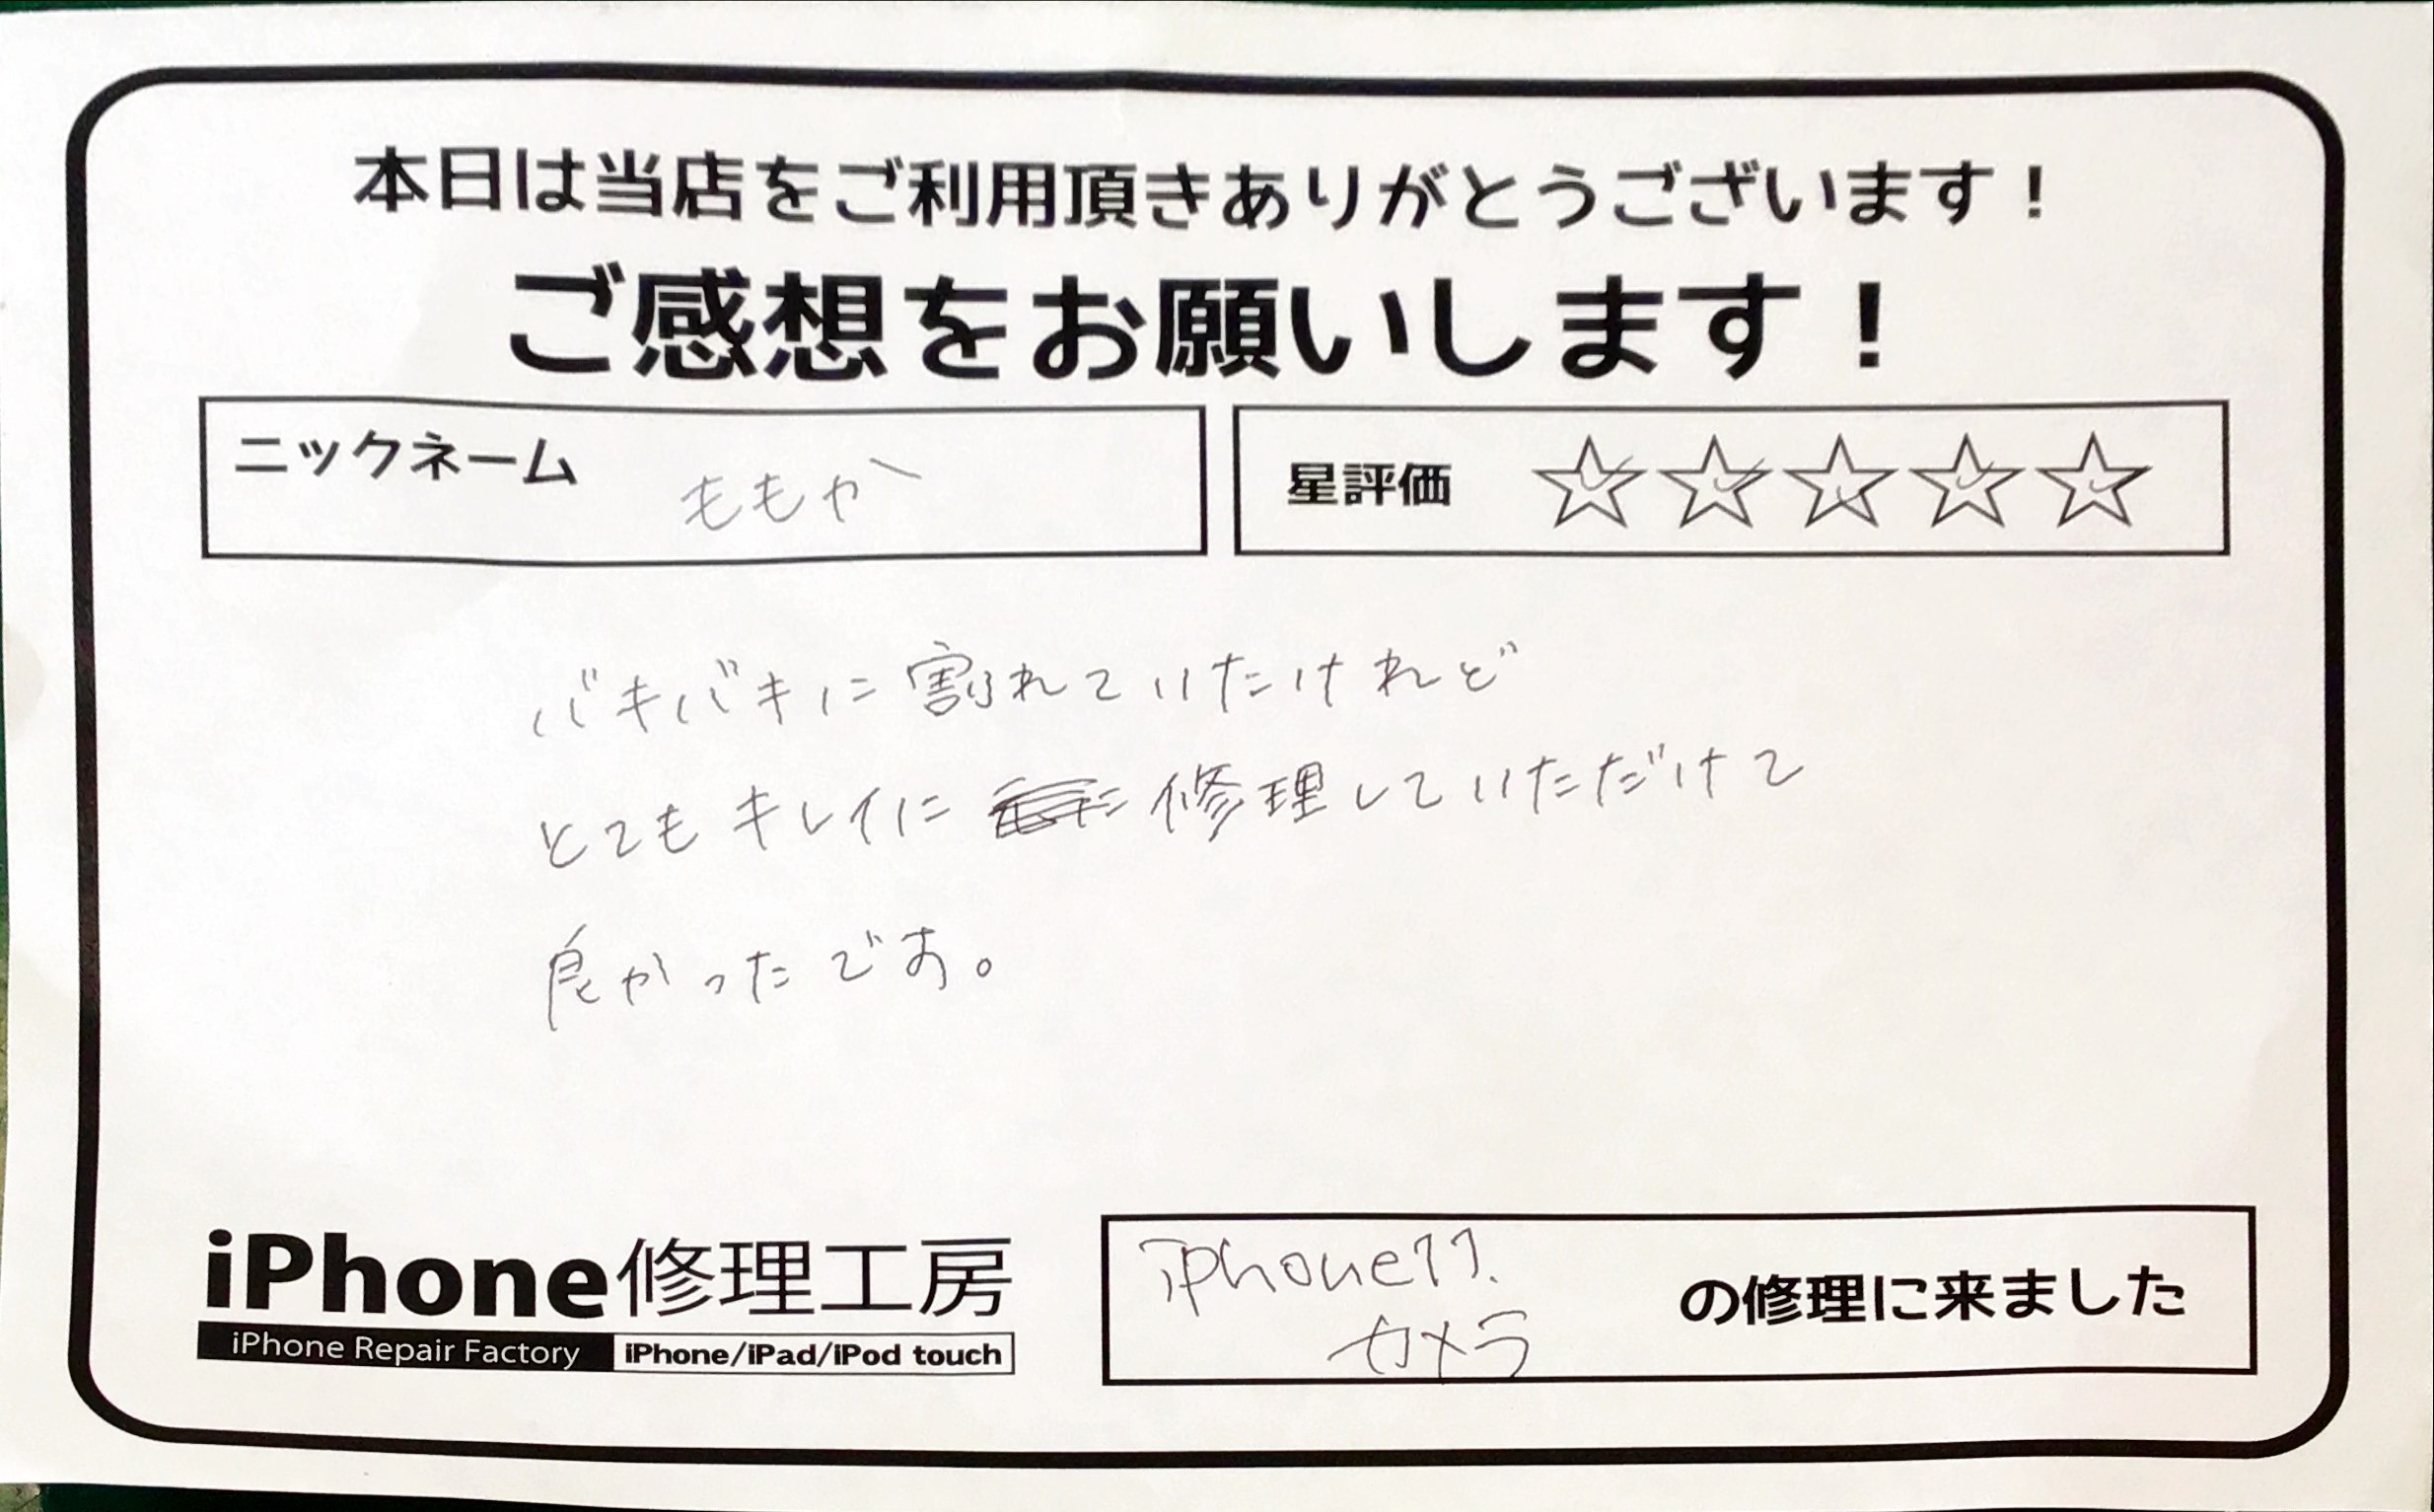 本日は当店をご利用頂きありがとうございます！
ご感想をお願いします！
ニックネーム ももか
星評価 ☆☆☆☆☆
バキバキに割れていたけれど
とてもキレイに修理していただけて
良かったです。
iPhone修理工房
iPhone Repair Factory iPhone/iPad/iPod touch
iphone11.
カメラ
の修理に来ました